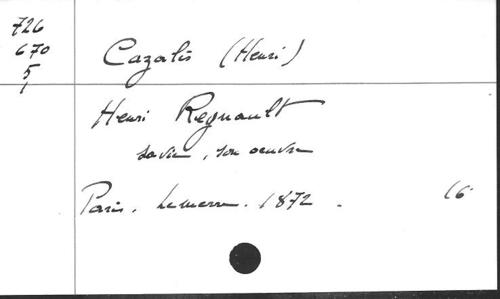 726
670
5
Cazalis (Henri)
Henri Regnault
sa vie, son oeuvre
Paris. Lemerre. 1872. 16